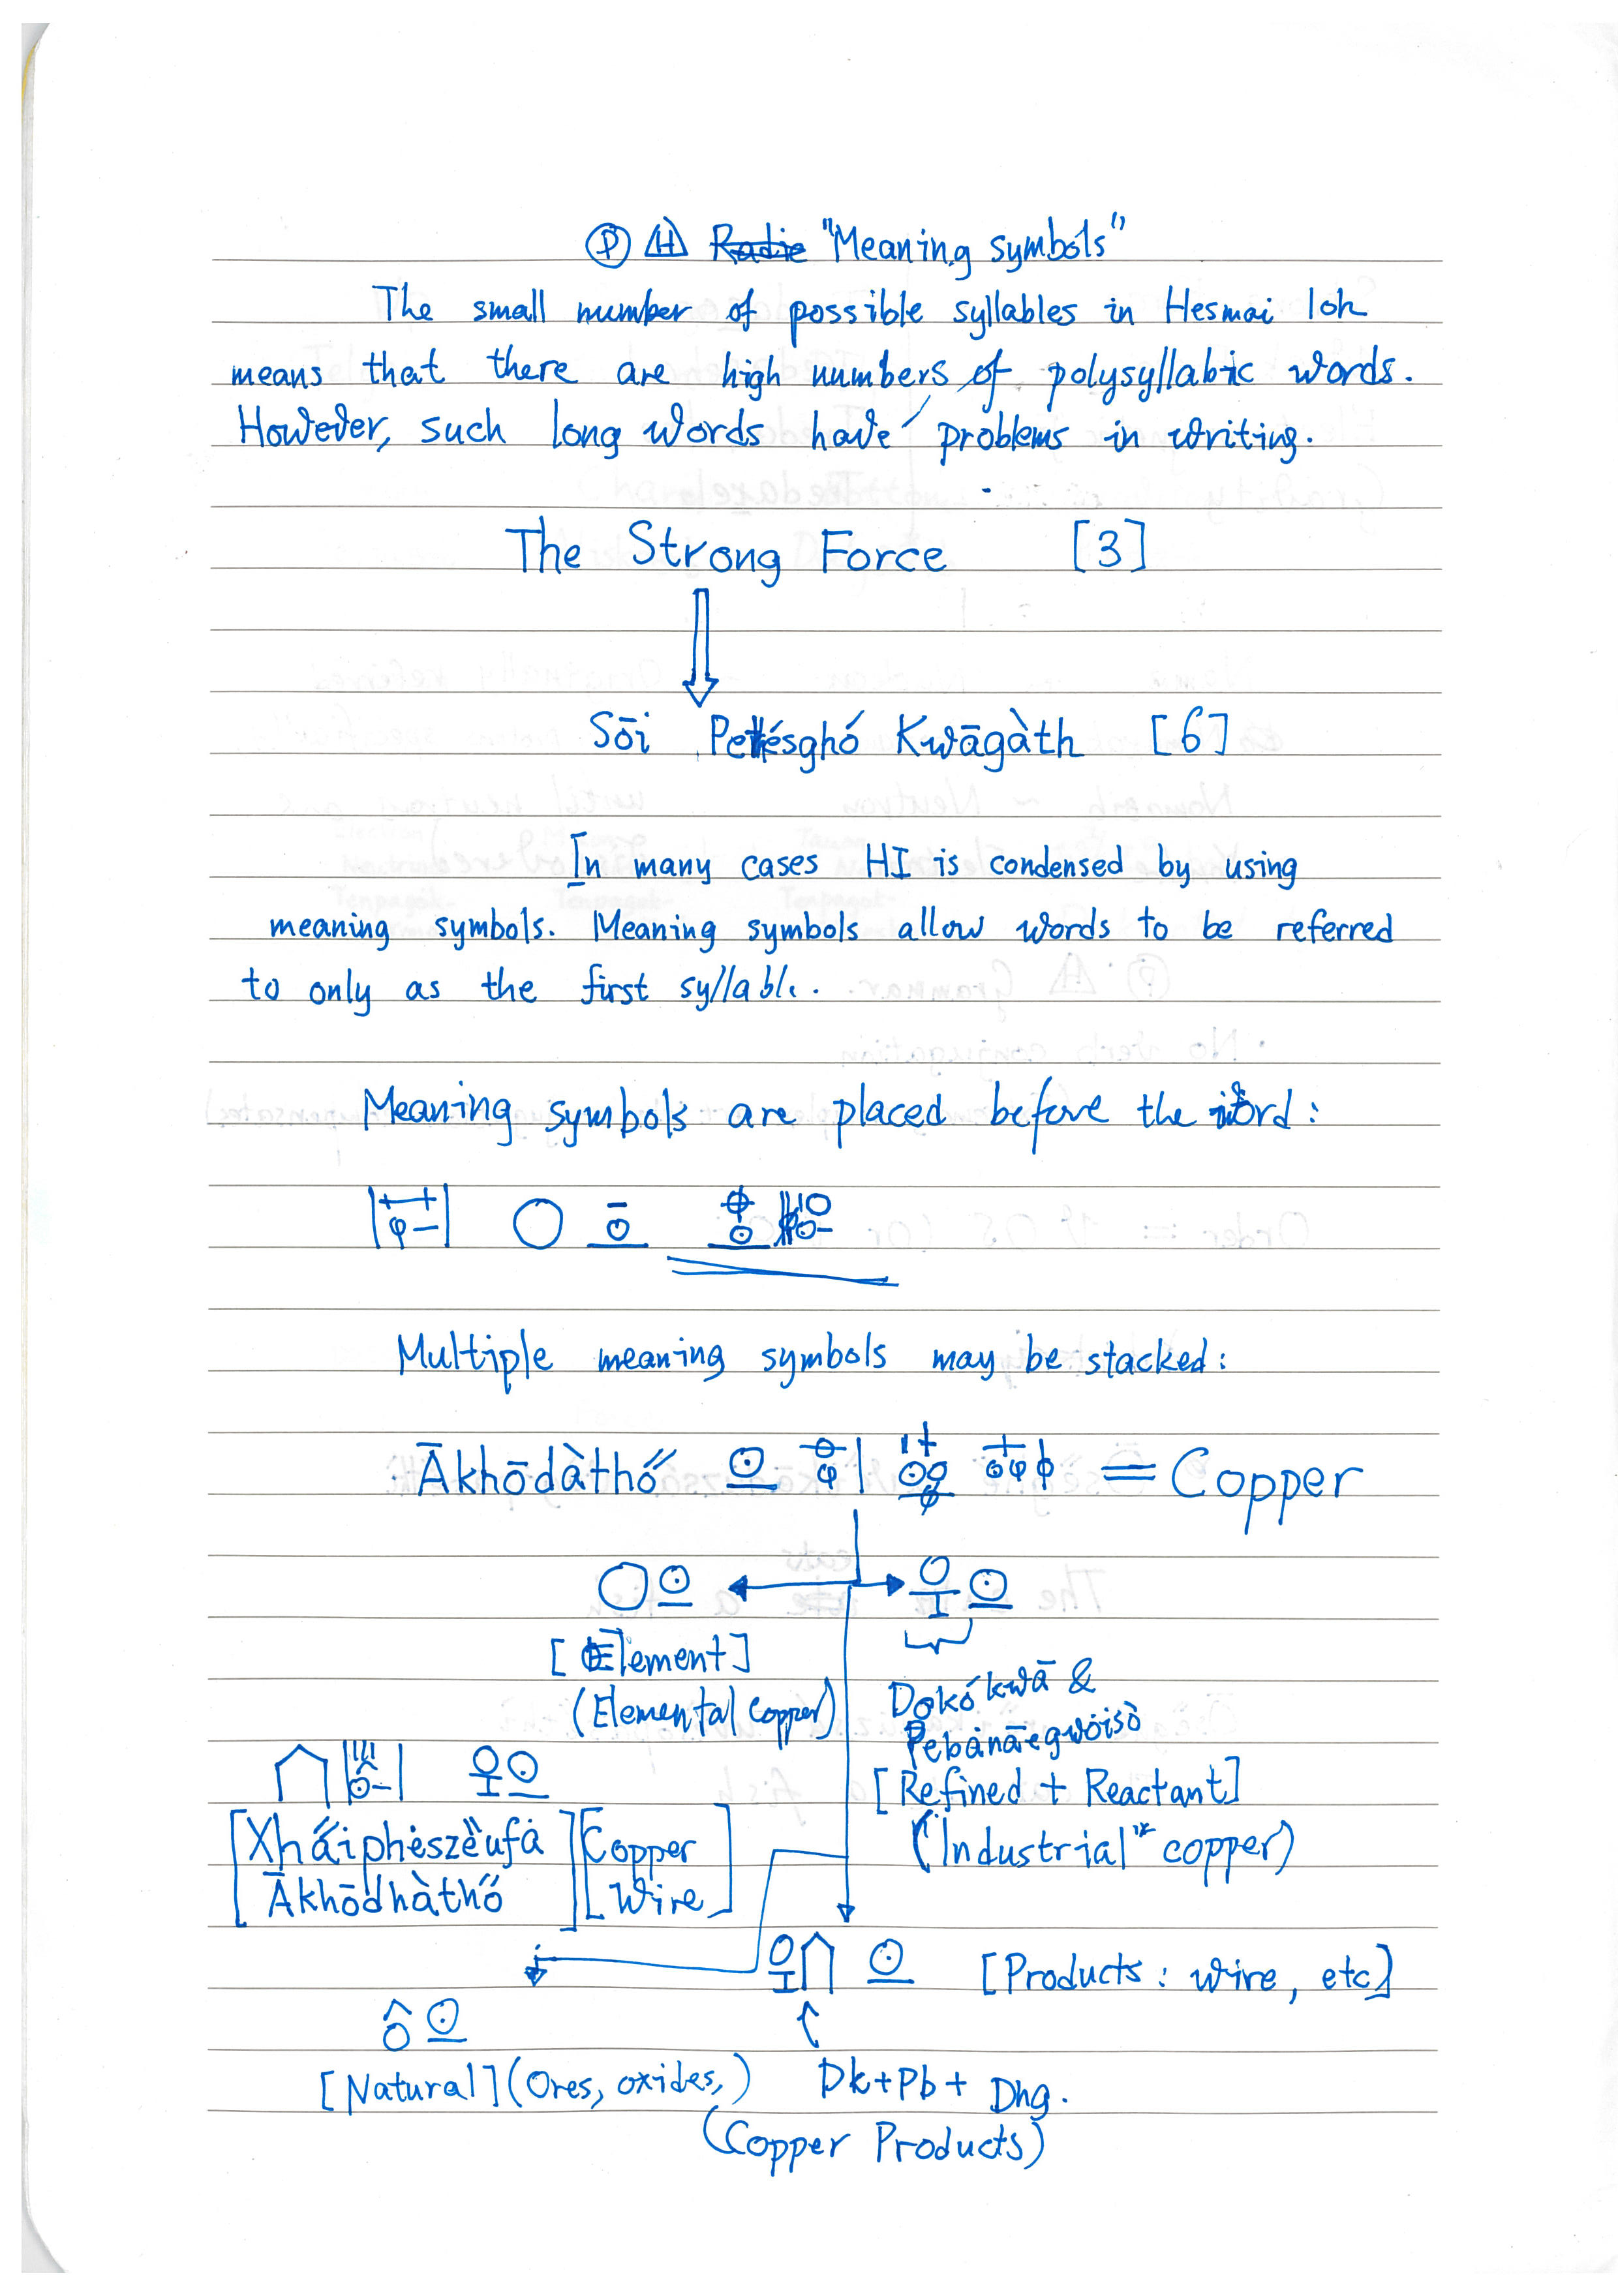 Ⓟ Ⓗ Radie "Meaning symbols"
The small number of possible syllables in Hesmai Ioh
means that there are high numbers of polysyllabic words.
However, such long words have problems in writing.
The Strong Force [3]
Sōi Petésghó Kwāgàth [6]
In many cases HI is condensed by using
meaning symbols. Meaning symbols allow words to be referred
to only as the first syllable.
Meaning symbols are placed before the word:
Multiple meaning symbols may be stacked:
Ākhōdàthő = Copper
[Element]
(Elemental copper)
Dokókwā &
Pebánāegwóisò
[Refined + Reactant]
("Industrial" copper)
[Xháiphèszèufà
Ākhōdhàthő]
[Copper
Wire]
[Products: wire, etc]
[Natural] (Ores, oxides,)
Dk+Pb+ Dhg.
(Copper Products)